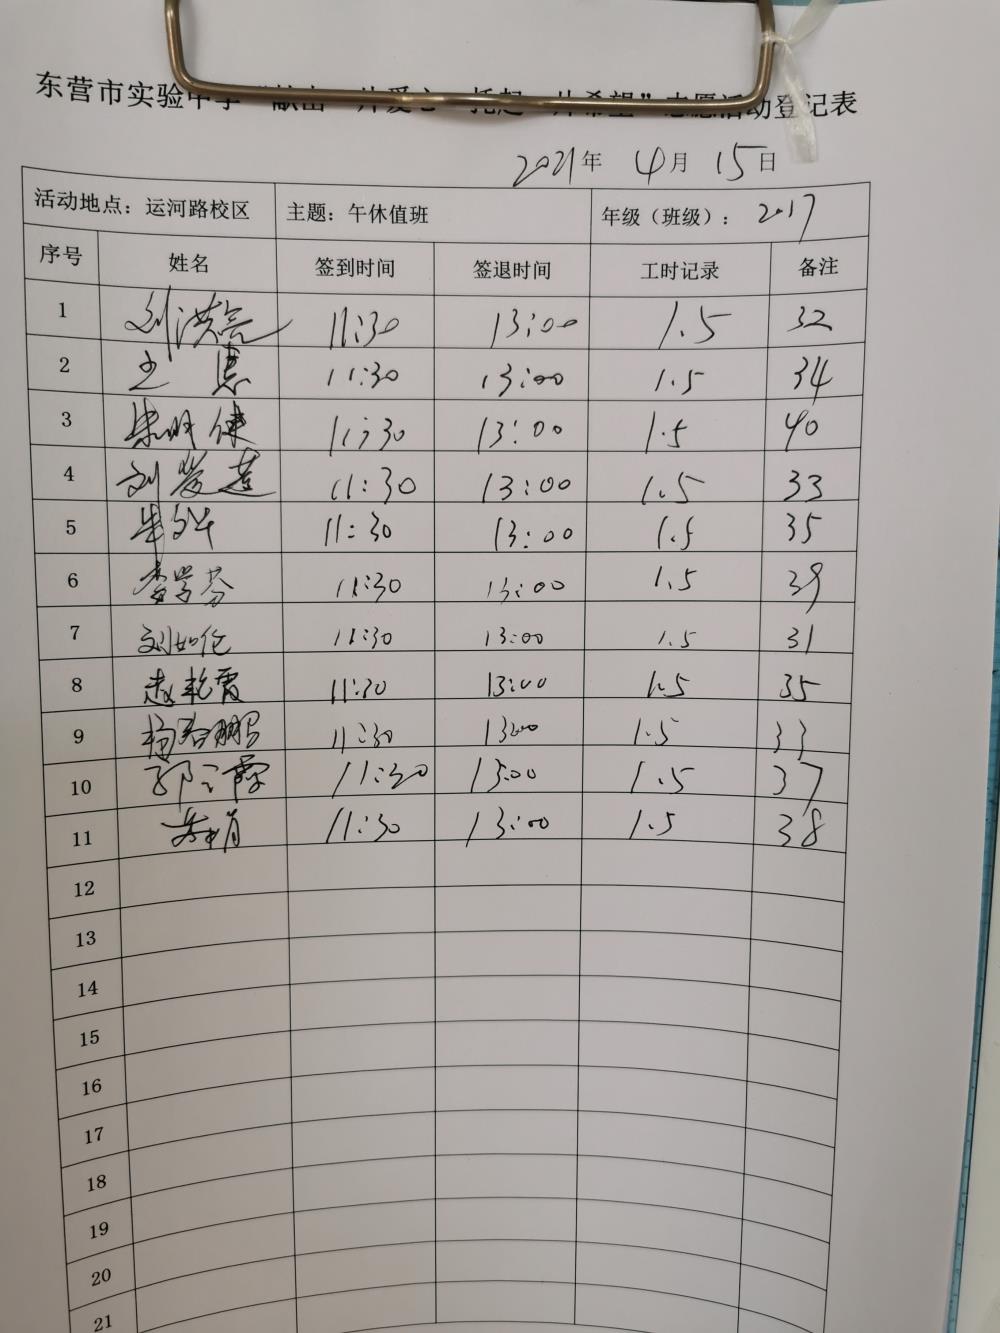 东营市实验中学“献出一片爱心 托起一片希望”志愿活动登记表
2021年 4月 15日
活动地点：运河路校区 主题：午休值班 年级（班级）：2017
序号 姓名 签到时间 签退时间 工时记录 备注
1 刘洪亮 11:30 13:00 1.5 32
2 王 惠 11:30 13:00 1.5 34
3 朱明健 11:30 13:00 1.5 40
4 刘爱莲 11:30 13:00 1.5 33
5 11:30 13:00 1.5 35
6 李学芬 11:30 13:00 1.5 39
7 刘如伦 11:30 13:00 1.5 31
8 赵艳霞 11:30 13:00 1.5 35
9 杨 11:30 13:00 1.5 33
10 郭 霞 11:30 13:00 1.5 37
11 11:30 13:00 1.5 38
12
13
14
15
16
17
18
19
20
21